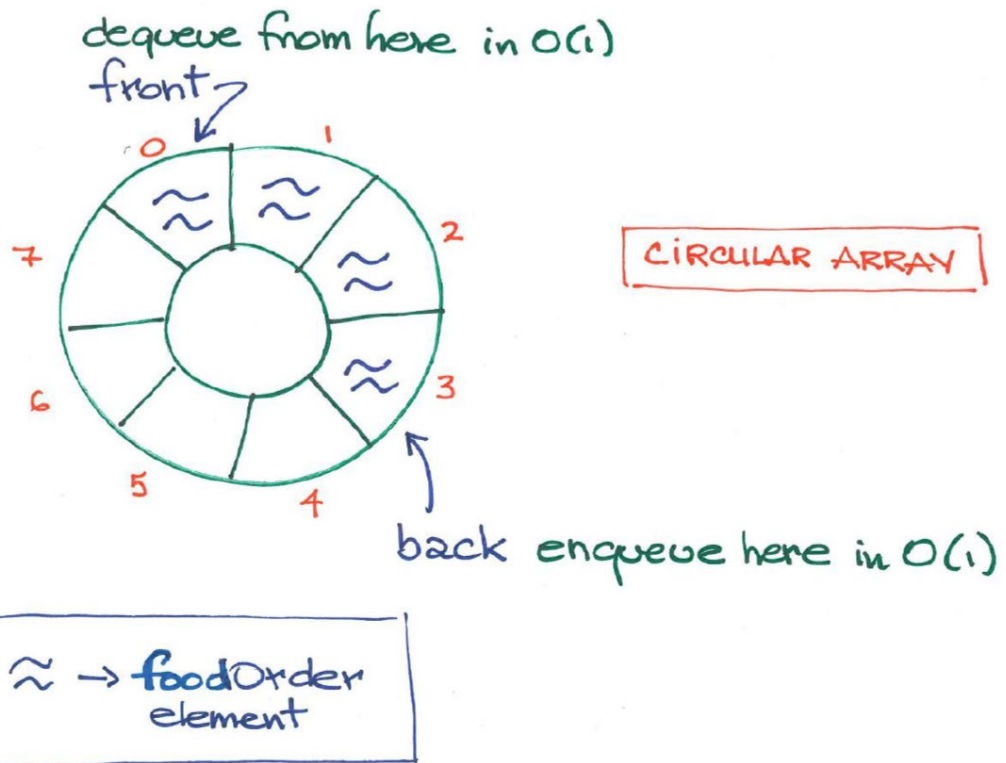 dequeue from here in O(1)
front
0
1
7
2
CIRCULAR ARRAY
6
3
5
4
back enqueue here in O(1)
≈ → foodOrder
element